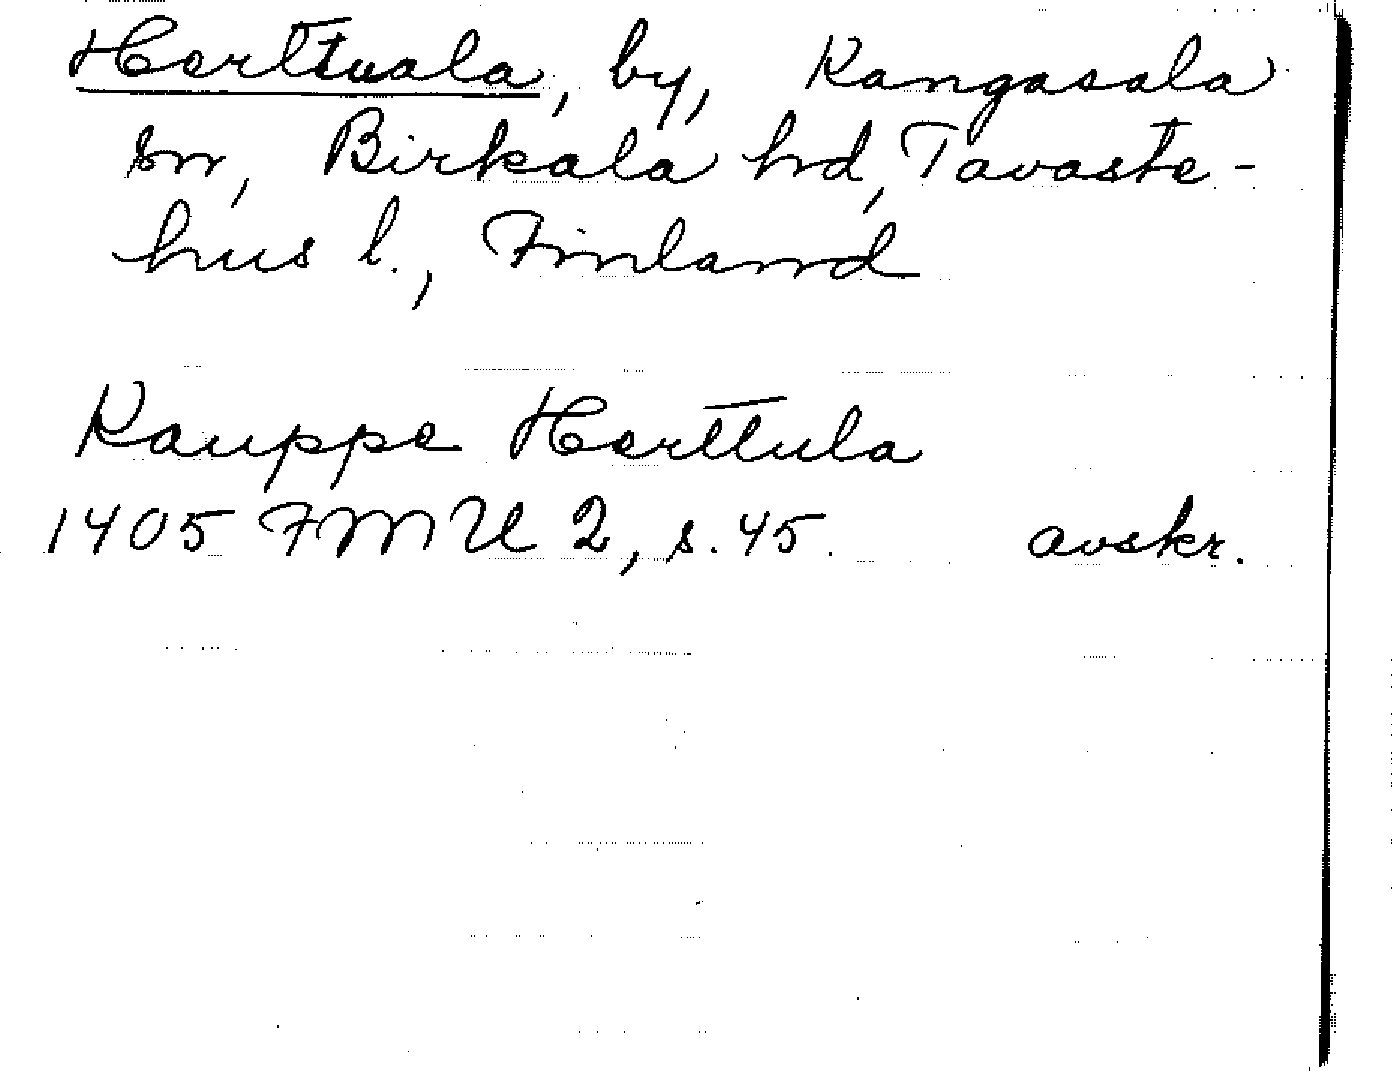 Herttuala, by, Kangasala
sn, Birkala hd, Tavaste-
hus l., Finland
Kauppe Herttula
1405 FMU 2, s. 45. avskr.